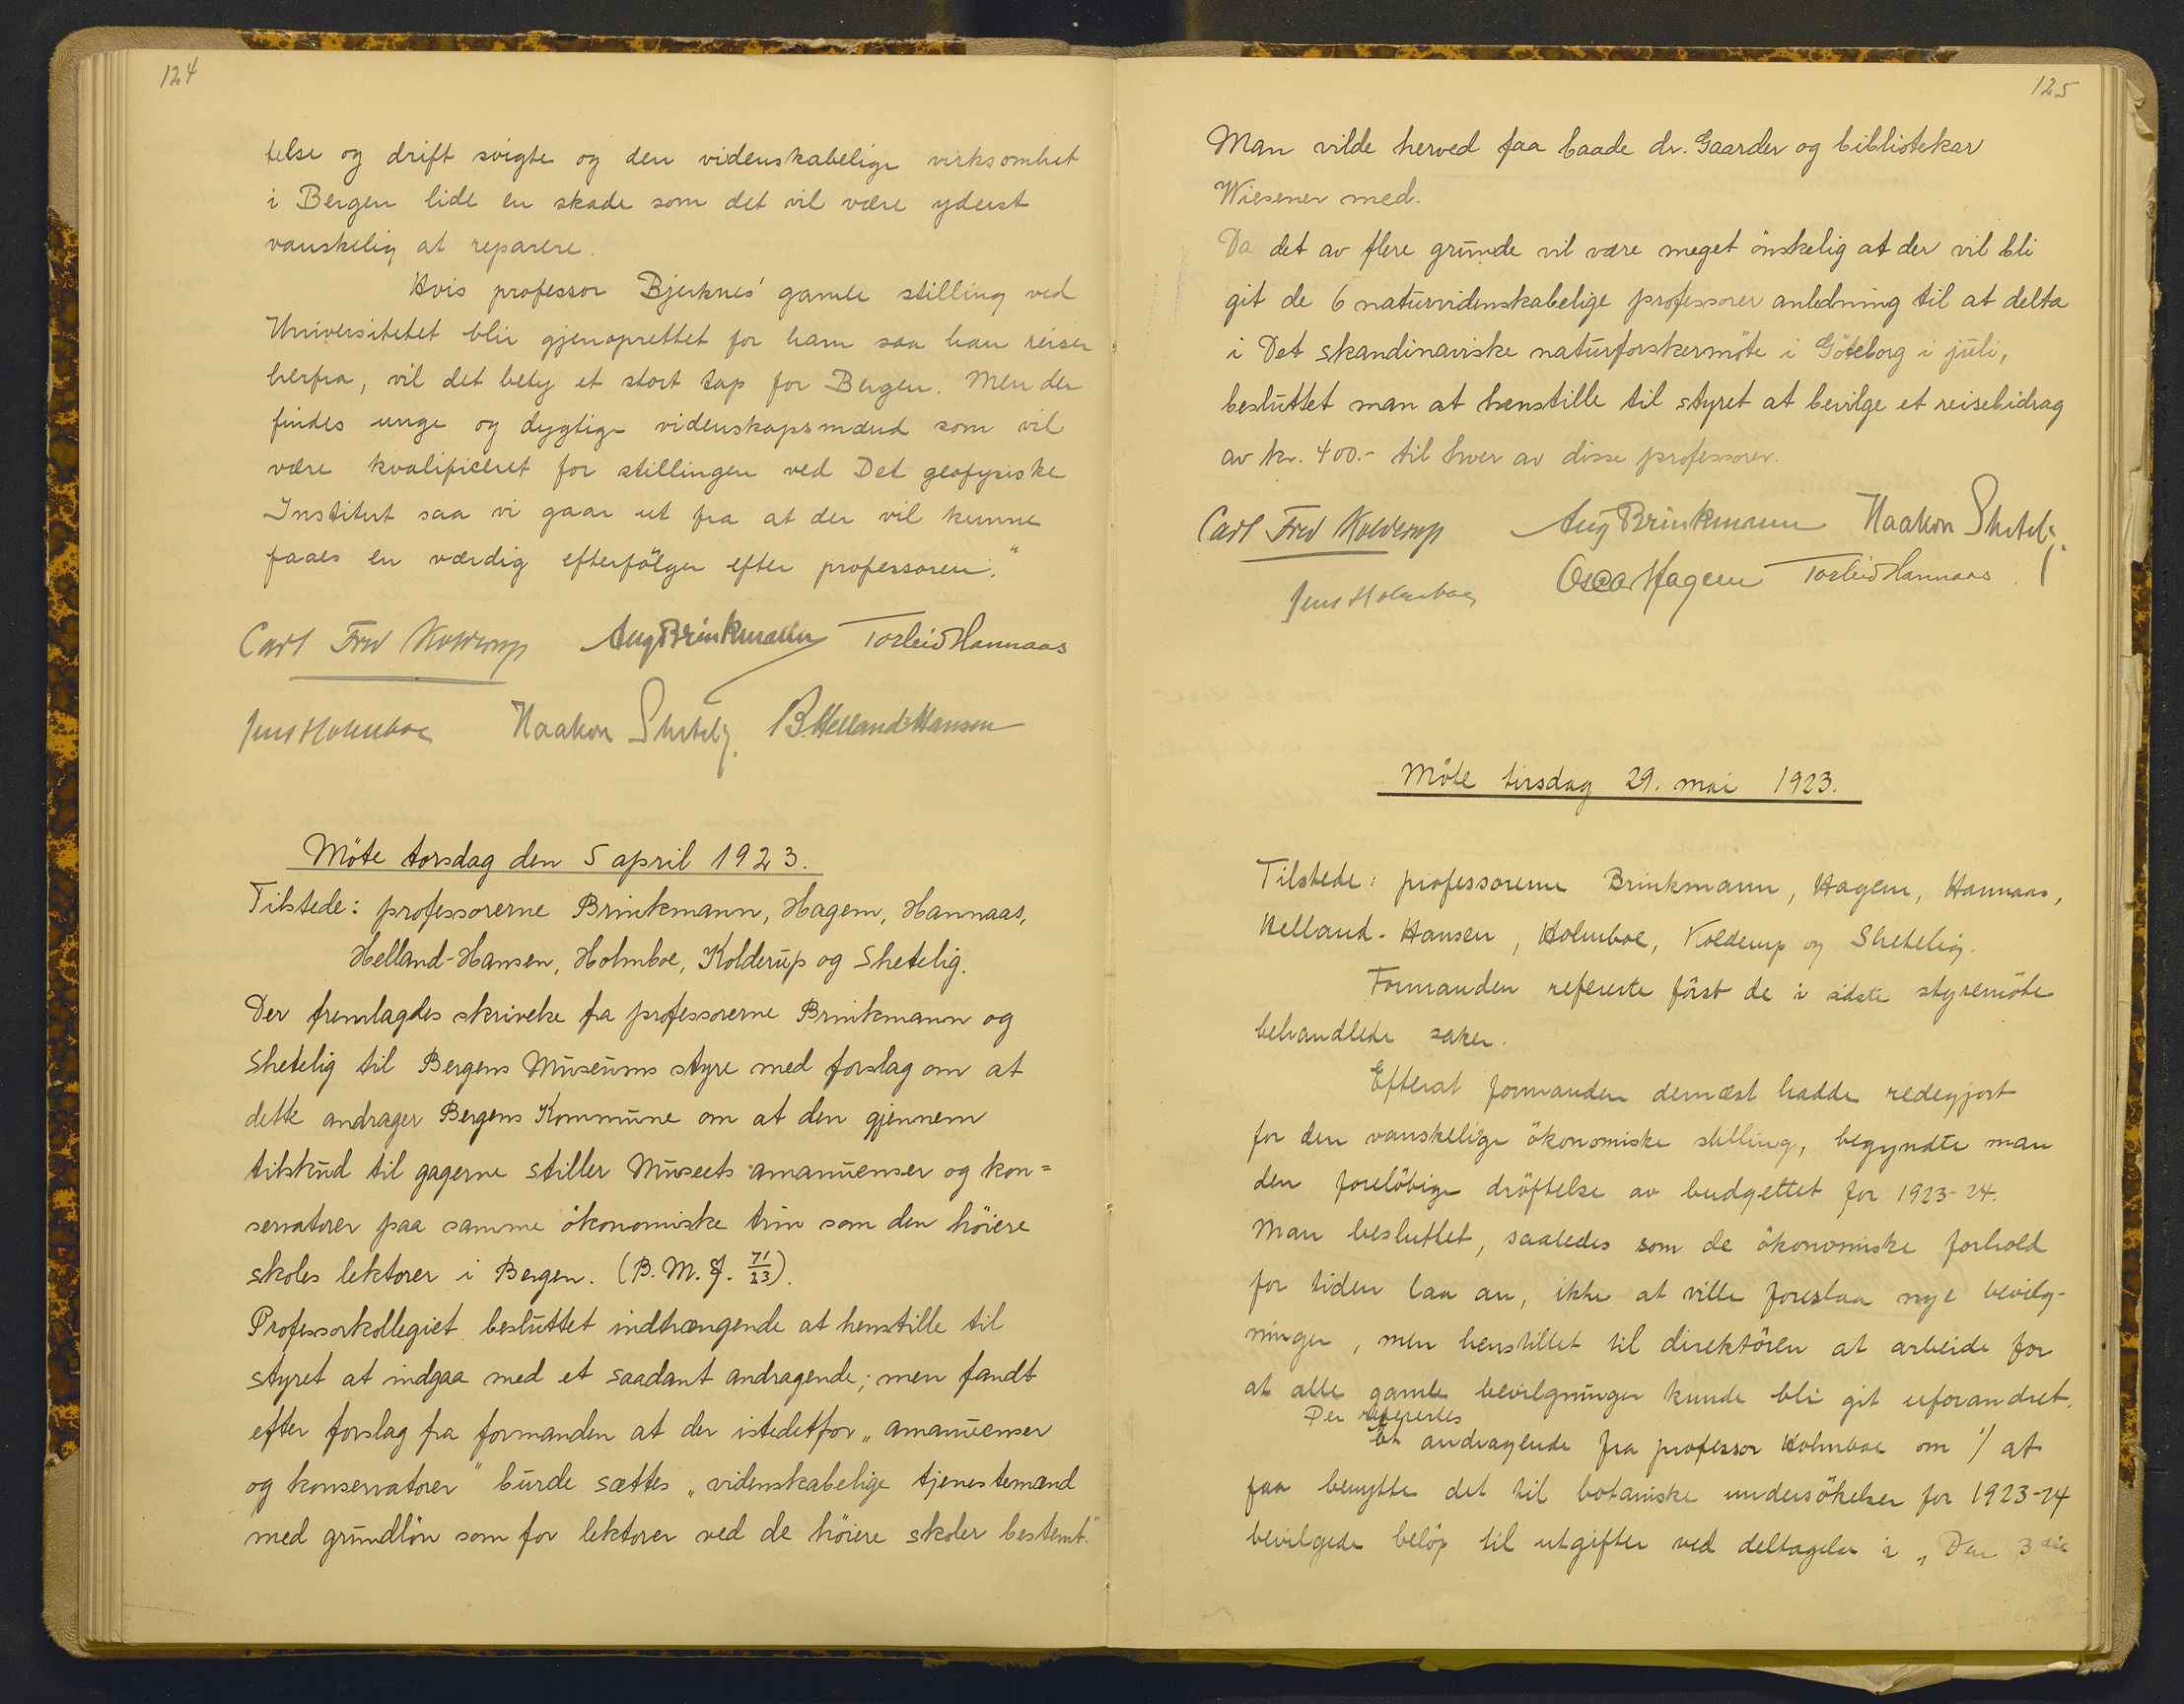 124
telse og drift svigte og den videnskabelige virksomhet
i Bergen lide en skade som det vil være yderst
vanskelig at reparere.
Hvis professor Bjerknes' gamle stilling ved
Universitetet blir gjenoprettet for ham saa han reiser
herfra, vil det bety et stort tap for Bergen. Men der
findes unge og dygtige videnskapsmænd som vil
være kvalificeret for stillingen ved Det geofysiske
Institut saa vi gaar ut fra at der vil kunne
faaes en værdig efterfölger efter professoren."
Carl Fred Kolderup Aug Brinkmann Torleiv Hannaas
Jens Holmboe Haakon Shetelig. B. Helland-Hansen
Möte torsdag den 5 april 1923.
Tilstede: professorerne Brinkmann, Hagem, Hannaas,
Helland-Hansen, Holmboe, Kolderup og Shetelig.
Der fremlagdes skrivelse fra professorerne Brinkmann og
Shetelig til Bergens Museums styre med forslag om at
dette andrager Bergens Kommune om at den gjennem
tilskud til gagerne stiller Museets amanuenser og kon=
servatorer paa samme ökonomiske trin som den höiere
skoles lektorer i Bergen. (B. M. J. 71/23).
Professorkollegiet besluttet indtrængende at henstille til
styret at indgaa med et saadant andragende; men fandt
efter forslag fra formanden at der istedetfor „amanuenser
og konservatorer" burde sættes „videnskabelige tjenestemænd
med grundlön som for lektorer ved de höiere skoler bestemt."
125
Man vilde herved faa baade dr. Gaarder og bibliotekar
Wiesener med.
Da det av flere grunde vil være meget önskelig at der vil bli
git de 6 naturvidenskabelige professorer anledning til at delta
i Det skandinaviske naturforskermöte i Göteborg i juli,
besluttet man at henstille til styret at bevilge et reisebidrag
av kr. 400.- til hver av disse professorer.
Carl Fred Kolderup Aug Brinkmann Haakon Shetelig.
Jens Holmboe Oscar Hagem Torleiv Hannaas
Möte tirsdag 29. mai 1923.
Tilstede: professorerne Brinkmann, Hagem, Hannaas,
Helland-Hansen, Holmboe, Kolderup og Shetelig.
Formanden refererte först de i sidste styremöte
behandlede saker.
Efterat formanden dernæst hadde redegjort
for den vanskelige ökonomiske stilling, begyndte man
den forelöbige dröftelse av budgettet for 1923-24.
Man besluttet, saaledes som de ökonomiske forhold
for tiden laa an, ikke at ville foreslaa nye bevilg-
ninger, men henstillet til direktören at arbeide for
at alle gamle bevilgninger kunde bli git uforandret.
Der referertes
Et andragende fra professor Holmboe om 1/ at
faa benytte det til botaniske undersökelser for 1923-24
bevilgede belöp til utgifter ved deltagelse i „Den 3die